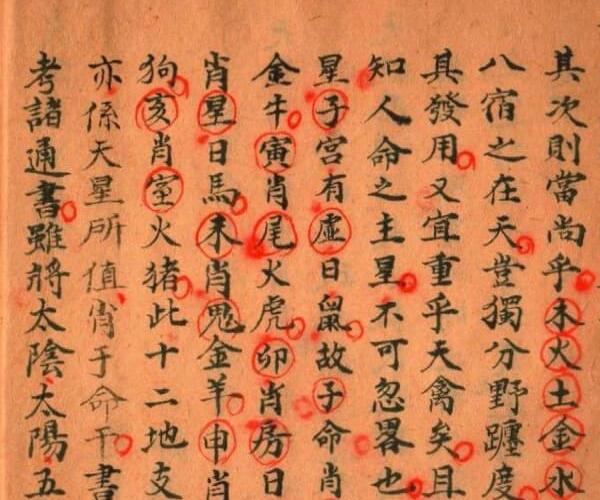 其次則當尚乎木火土金水
八宿之在天豈獨分野躔度
其發用又宜重乎天禽矣且
知人命之主星不可忽畧也
星子宮有虛日鼠故子命肖
金牛寅肖尾火虎卯肖房日
肖星日馬未肖鬼金羊申肖
狗亥肖室火猪此十二地支
亦係天星所值肖于命干書
考諸通書雖將太陰太陽五